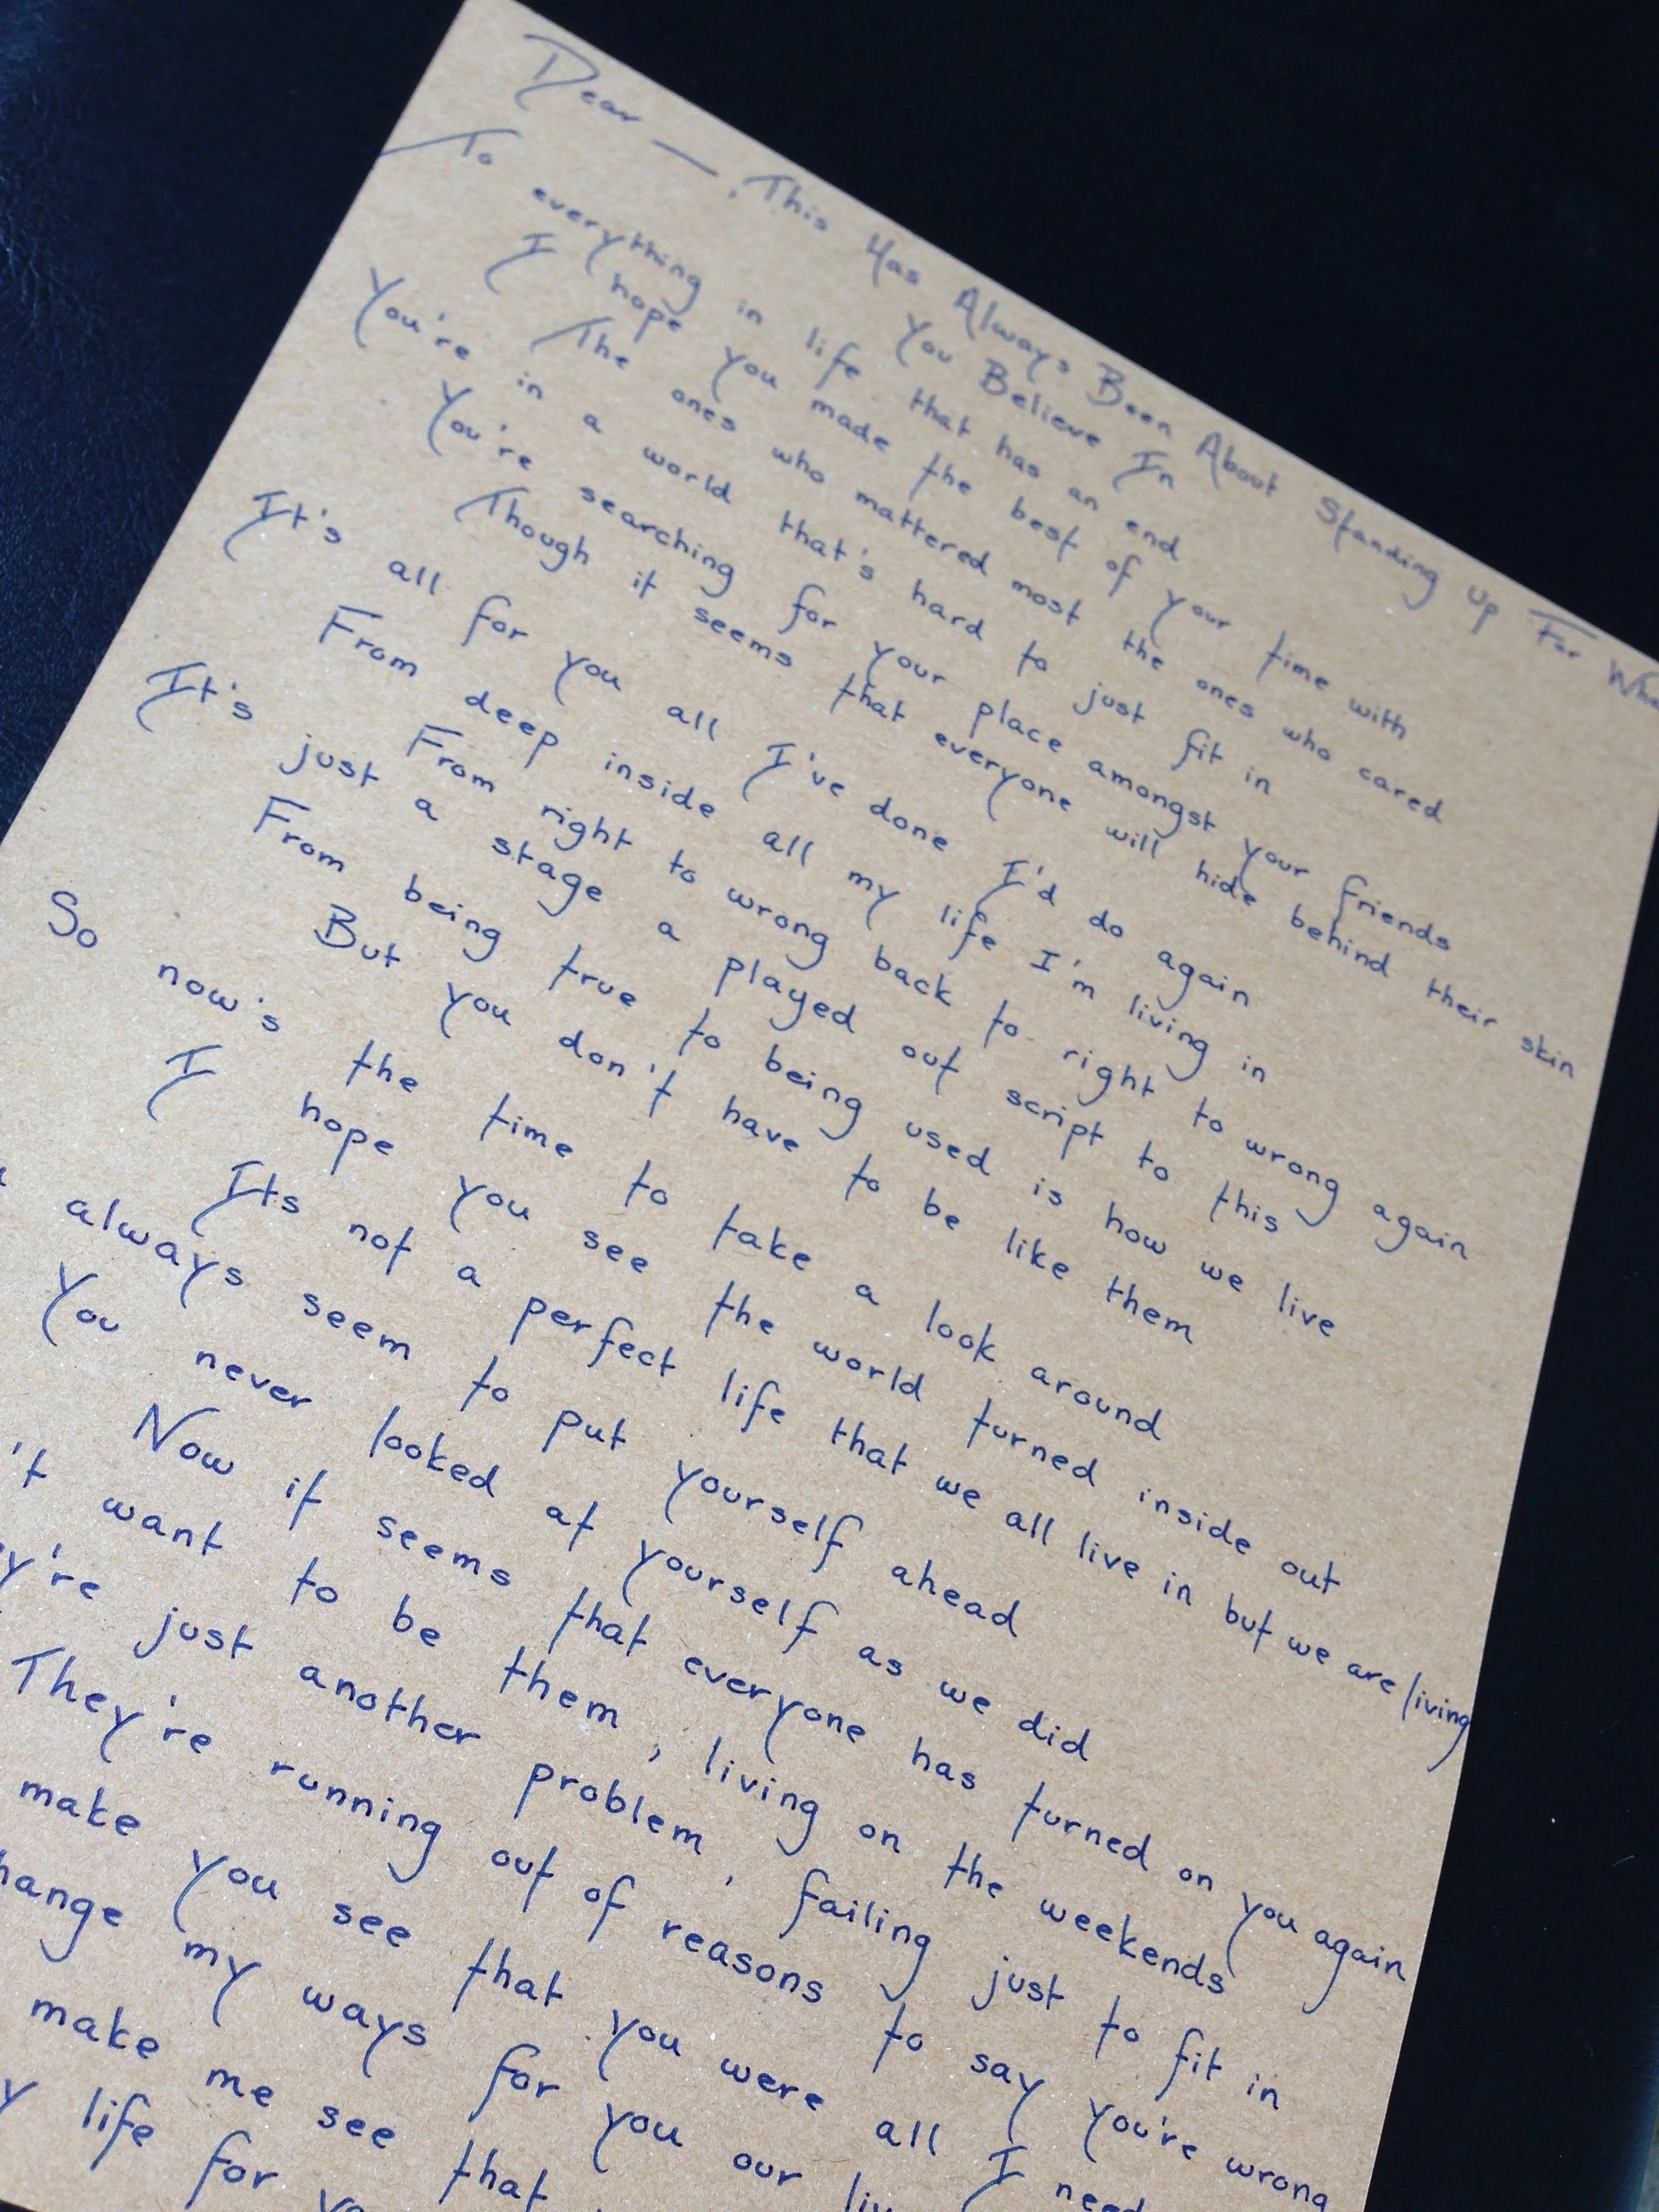 Dear —, This Has Always Been About Standing Up For Wha
You Believe In
To everything in life that has an end
I hope you made the best of your time with
The ones who mattered most the ones who cared
You're in a world that's hard to just fit in
You're searching for your place amongst your friends
Though it seems that everyone will hide behind their skin
It's all for you all I've done I'd do again
From deep inside all my life I'm living in
From right to wrong back to right to wrong again
It's just a stage a played out script to this
From being true to being used is how we live
But you don't have to be like them
So now's the time to take a look around
I hope you see the world turned inside out
Its not a perfect life that we all live in but we are living
always seem to put yourself ahead
You never looked at yourself as we did
Now it seems that everyone has turned on you again
't want to be them, living on the weekends
y're just another problem, failing just to fit in
They're running out of reasons to say you're wrong
make you see that you were all I need
hange my ways for you our liv
make me see that
y life for yo